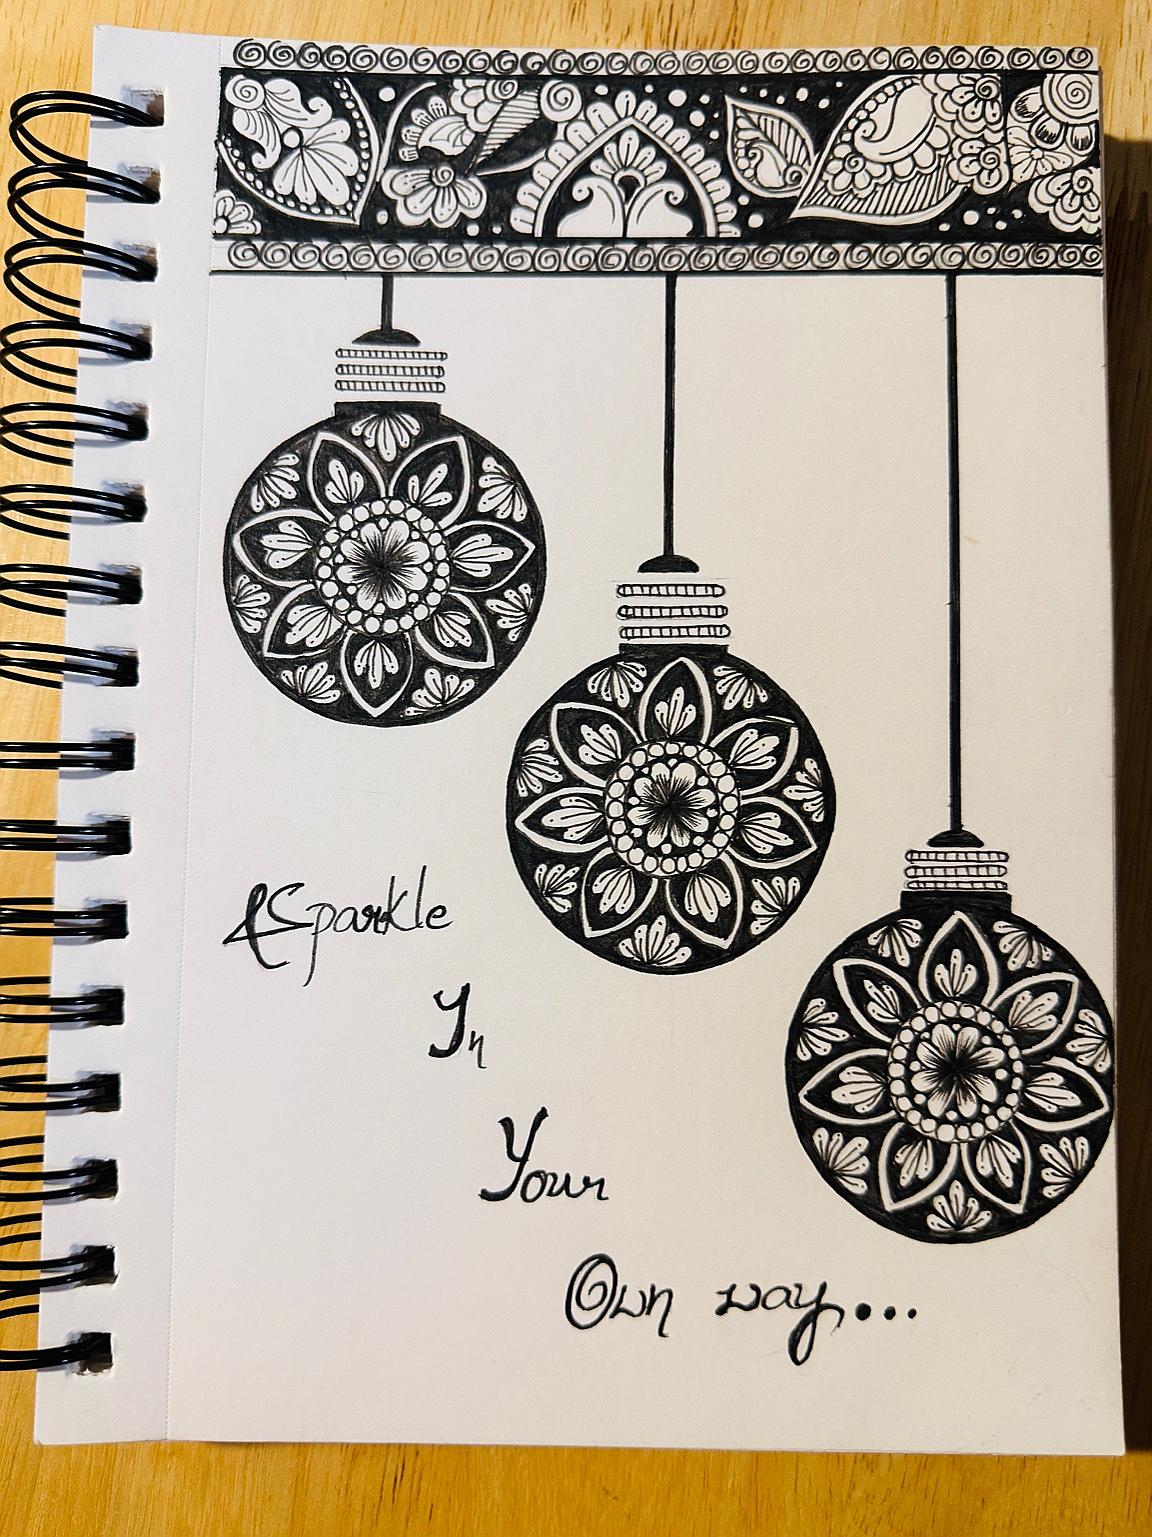 Sparkle
In
Your
Own way...